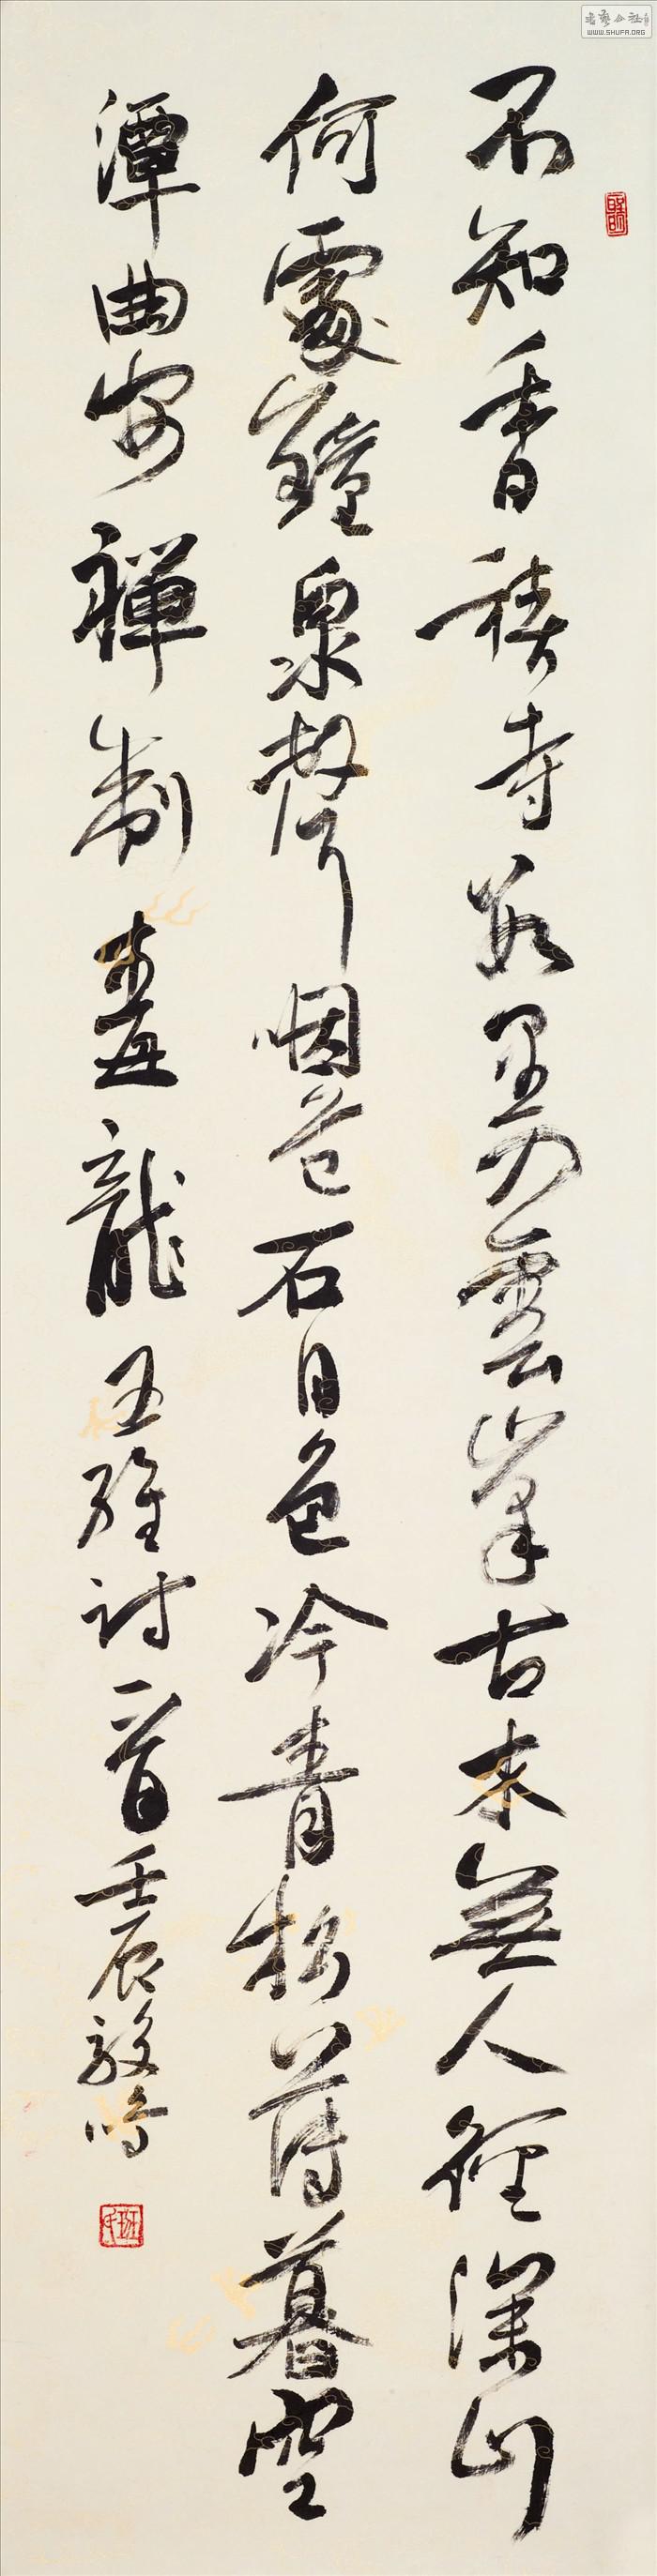 不知香積寺數里入雲峯古木無人徑深山
何處鐘泉聲咽危石日色冷青松薄暮空
潭曲安禪制毒龍 王維詩一首 壬辰
書藝公社
WWW.SHUFA.ORG